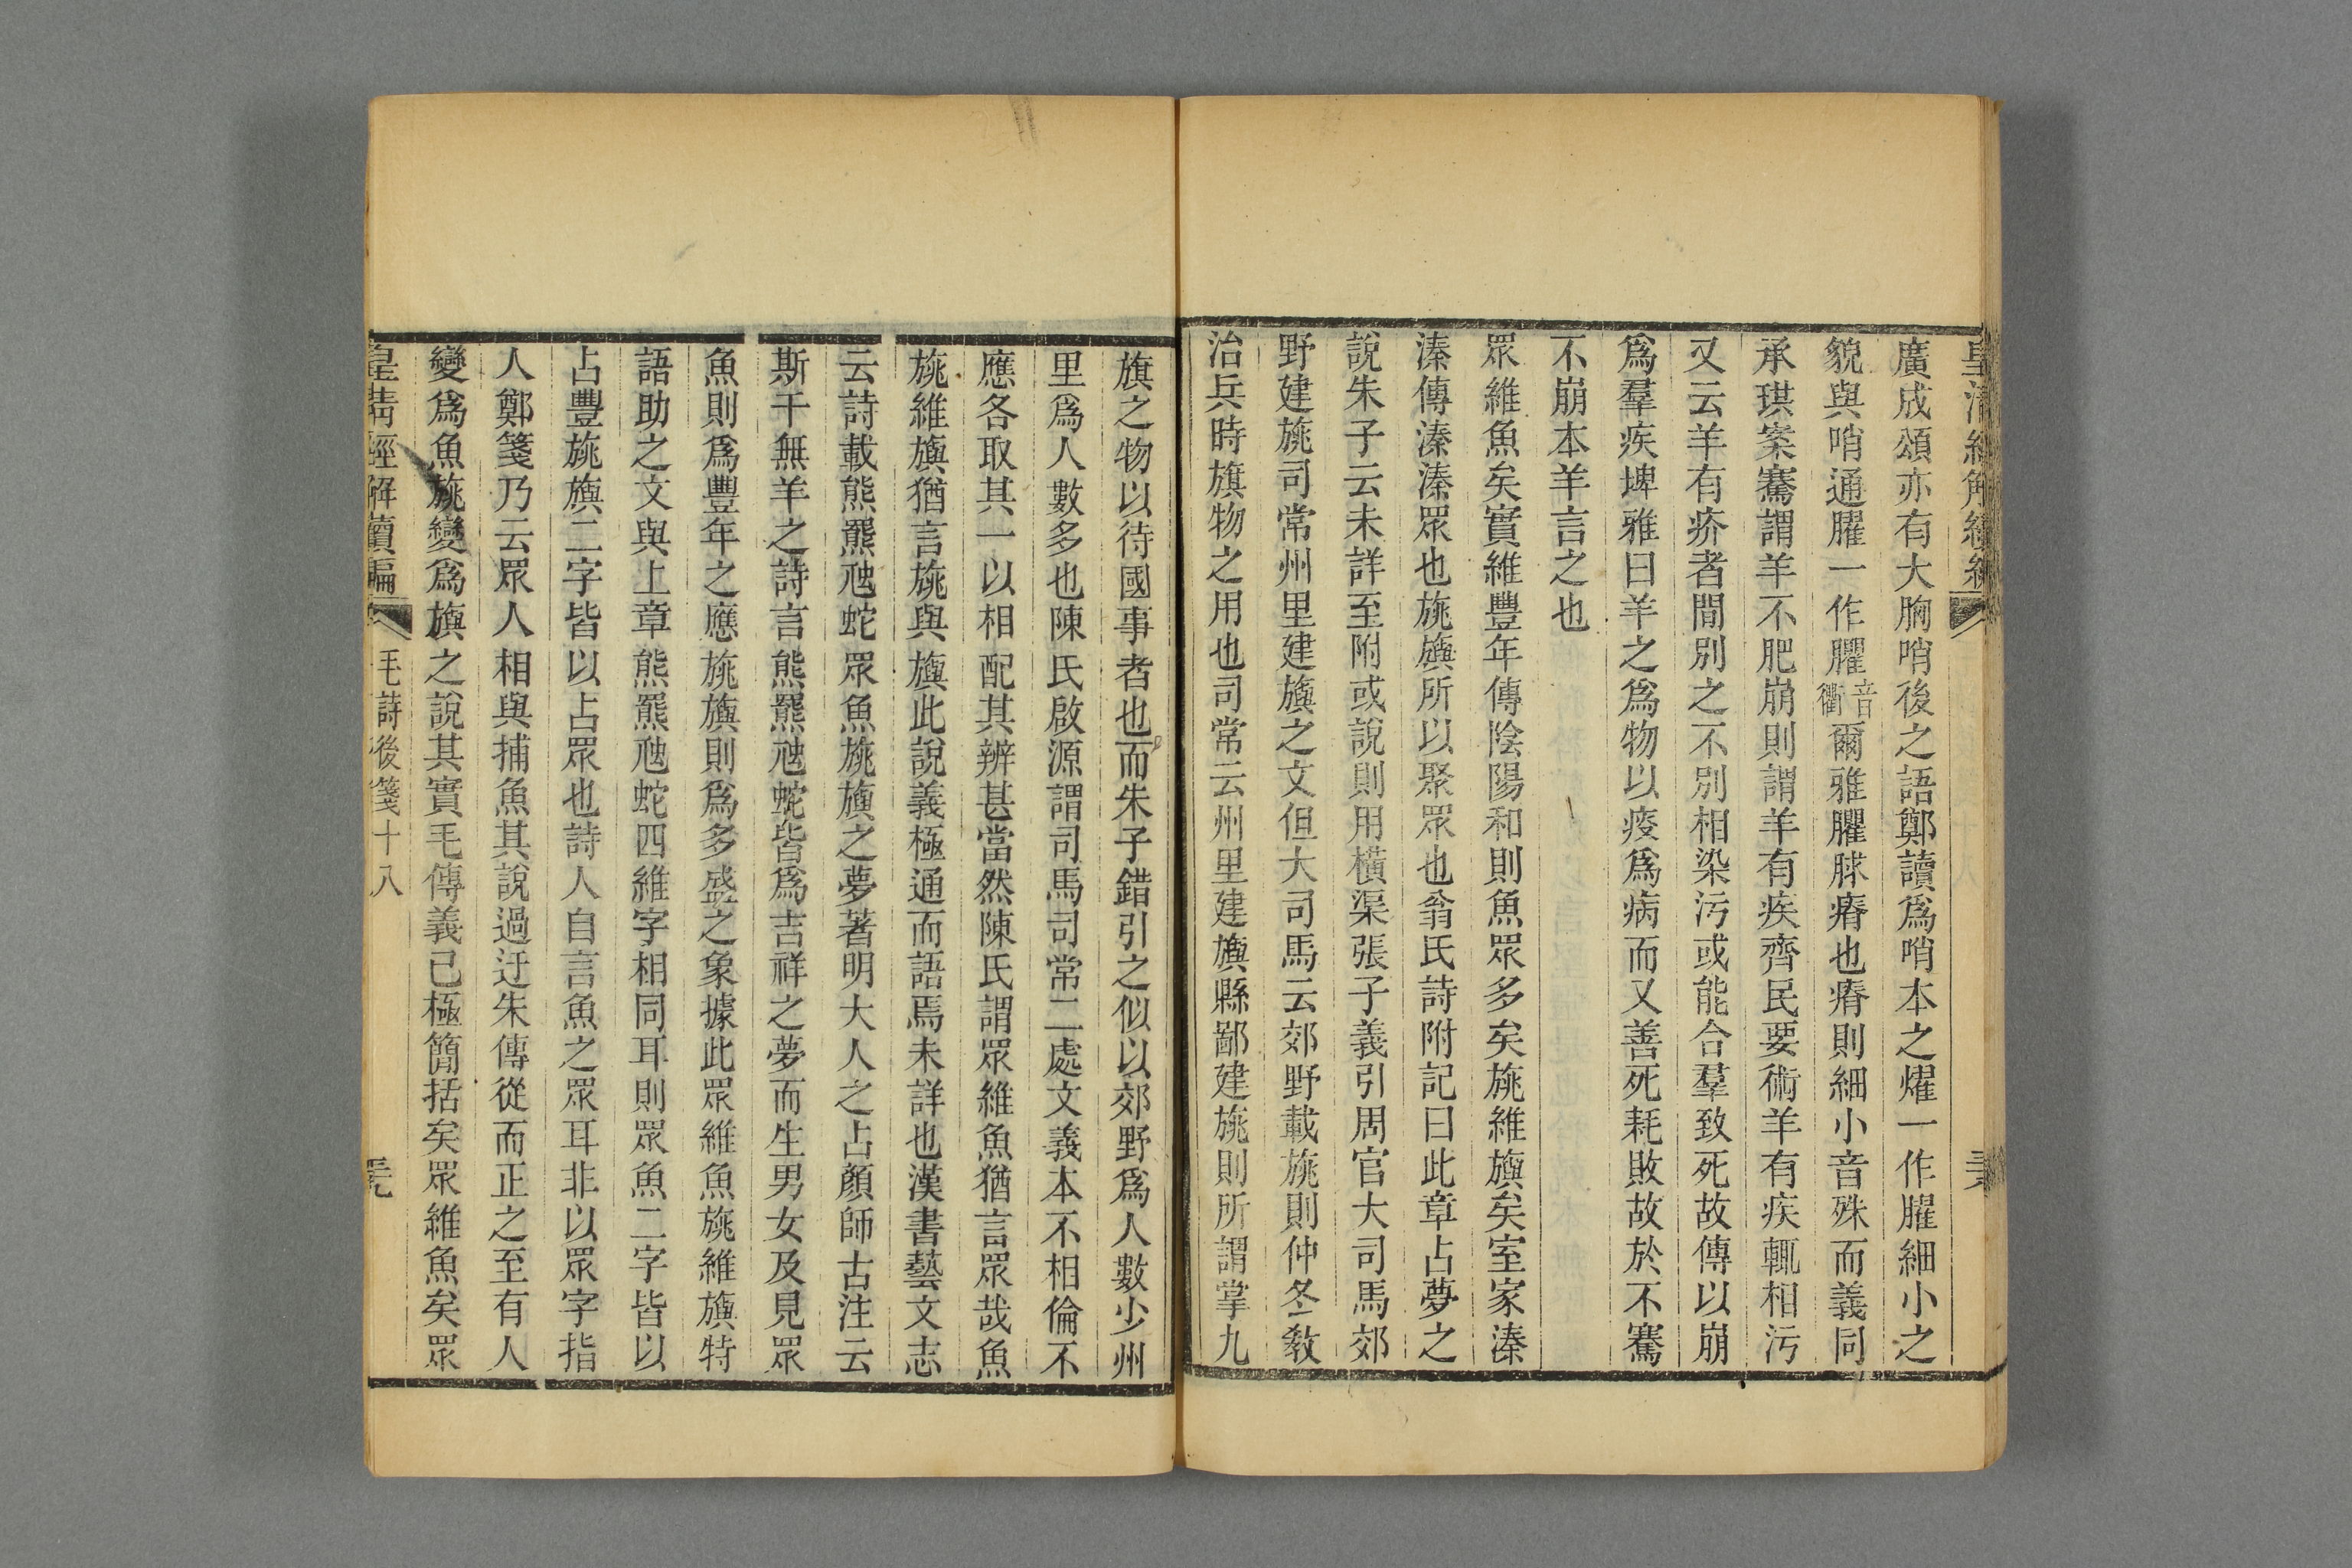 皇清經解續編
廣成頌亦有大胸哨後之語鄭讀爲哨本之燿一作臞細小之
貌與哨通臞一作臞音衢爾雅臞脙瘠也瘠則細小音殊而義同
承珙案騫謂羊不肥崩則謂羊有疾齊民要術羊有疾輒相污
又云羊有疥者間別之不別相染污或能合羣致死故傳以崩
爲羣疾埤雅曰羊之爲物以疫爲病而又善死耗敗故於不騫
不崩本羊言之也
眾維魚矣實維豐年傳陰陽和則魚眾多矣旐維旟矣室家溱
溱傳溱溱眾也旐旟所以聚眾也翁氏詩附記曰此章占夢之
說朱子云未詳至附或說則用橫渠張子義引周官大司馬郊
野建旐司常州里建旟之文但大司馬云郊野載旐則仲冬教
治兵時旗物之用也司常云州里建旟縣鄙建旐則所謂掌九
旗之物以待國事者也而朱子錯引之似以郊野爲人數少州
里爲人數多也陳氏啟源謂司馬司常二處文義本不相倫不
應各取其一以相配其辨甚當然陳氏謂眾維魚猶言眾哉魚
旐維旟猶言旐與旟此說義極通而語焉未詳也漢書藝文志
云詩載熊羆虺蛇眾魚旐旟之夢著明大人之占顏師古注云
斯干無羊之詩言熊羆虺蛇皆爲吉祥之夢而生男女及見眾
魚則爲豐年之應旐旟則爲多盛之象據此眾維魚旐維旟特
語助之文與上章熊羆虺蛇四維字相同耳則眾魚二字皆以
占豐旐旟二字皆以占眾也詩人自言魚之眾耳非以眾字指
人鄭箋乃云眾人相與捕魚其說過迂朱傳從而正之至有人
變爲魚旐變爲旟之說其實毛傳義已極簡括矣眾維魚矣眾
皇清經解續編 毛詩後箋十八 三九